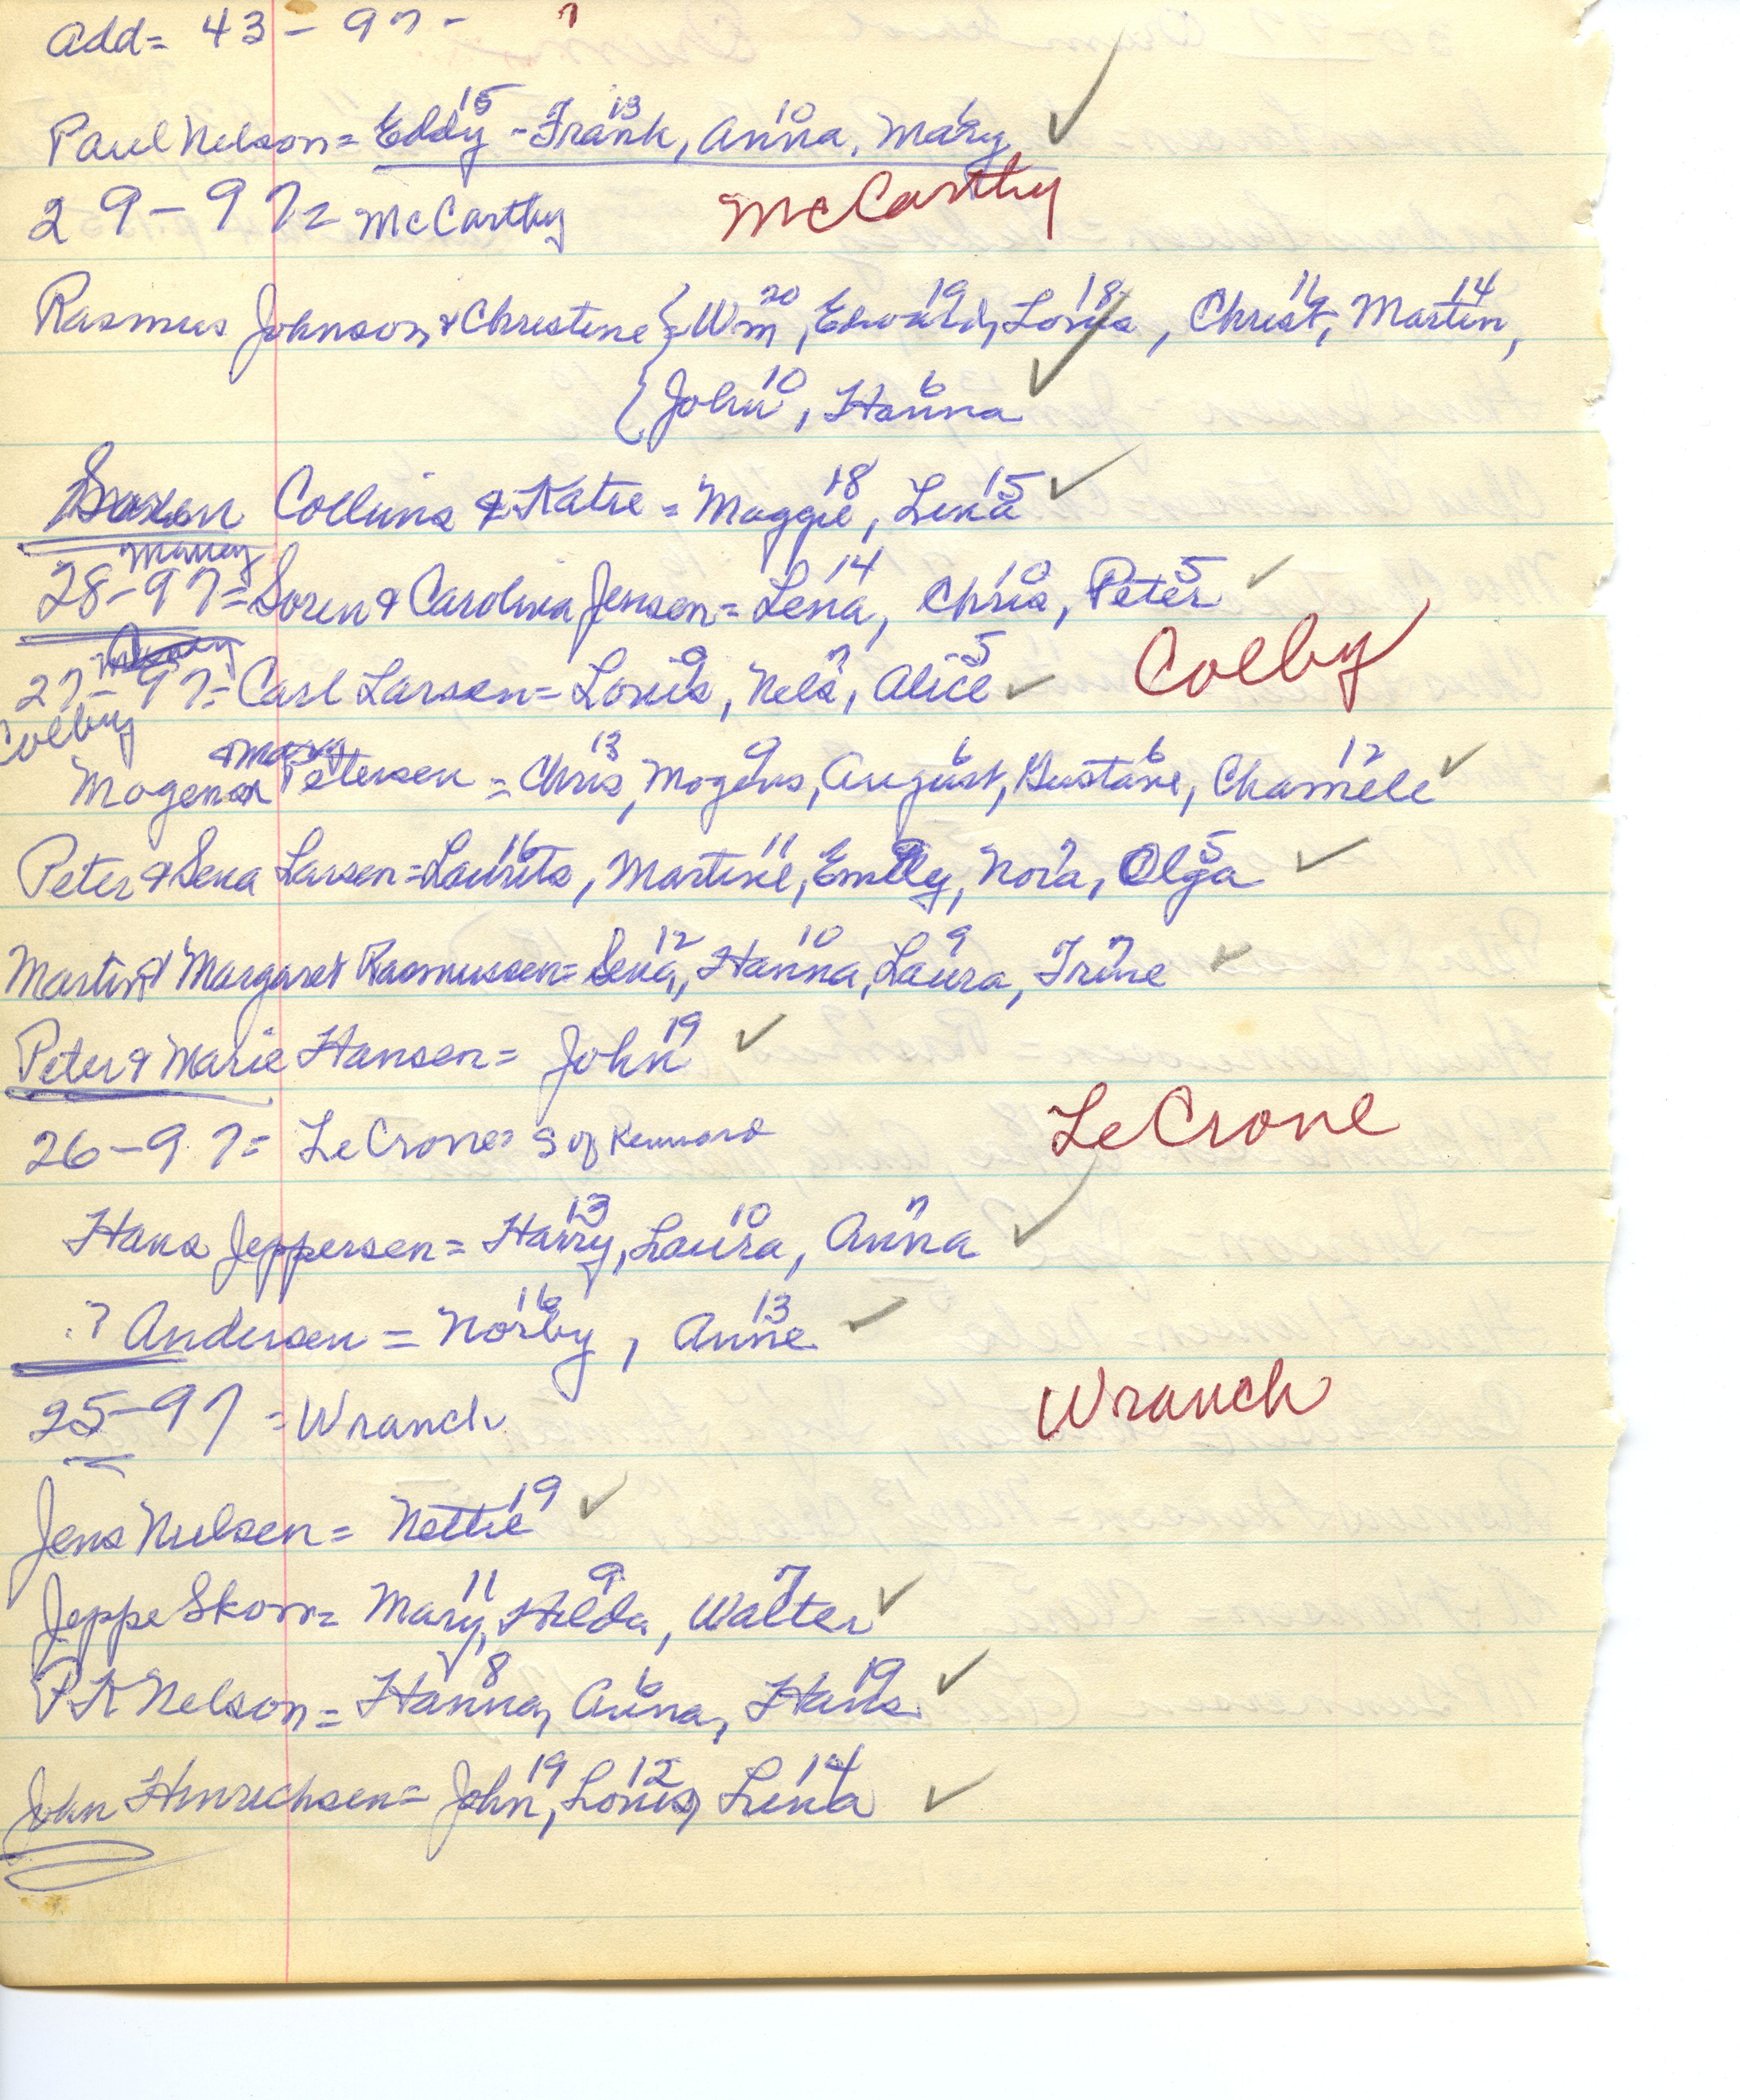 Add = 43 - 97 - ?
15 13 10 6
Paul Nelson = Eddy - Frank, Anna, Mary ✓
29 - 97 = McCarthy McCarthy
20 19 18 16 14
Rasmus Johnson & Christine } = Wm, Edward, Louis, Christ, Martin,
10 6
{ John, Hanna ✓
18 15
Collins & Katie = Maggie, Lena ✓
14 10 5
28 - 97 = Soren & Carolina Jensen = Lena, Chris, Peter ✓
9 7 5
27 - 97 = Carl Larsen = Louis, Nels, Alice ✓ Colby
Colby
& Mary 13 9 6 6 12
Mogensen Petersen = Chris, Mogens, August, Gustave, Chamele ✓
16 11 9 7 5
Peter & Sena Larsen = Laurits, Martine, Emily, Nora, Olga ✓
12 10 9 7
Martin & Margaret Rasmussen = Sena, Hanna, Laura, Trine ✓
19
Peter & Marie Hansen = John ✓
26 - 97 = LeCrone = S of Kennard LeCrone
13 10 7
Hans Jeppersen = Harry, Laura, Anna ✓
16 13
? Andersen = Norby, Anne ✓
25 - 97 = Wranch Wranch
19
Jens Nielsen = Nettie ✓
11 9 7
Jeppe Skow = Mary, Hilda, Walter ✓
8 6 19
P K Nelson = Hanna, Anna, Hans ✓
19 12 14
John Hinrichsen = John, Louis, Lena ✓